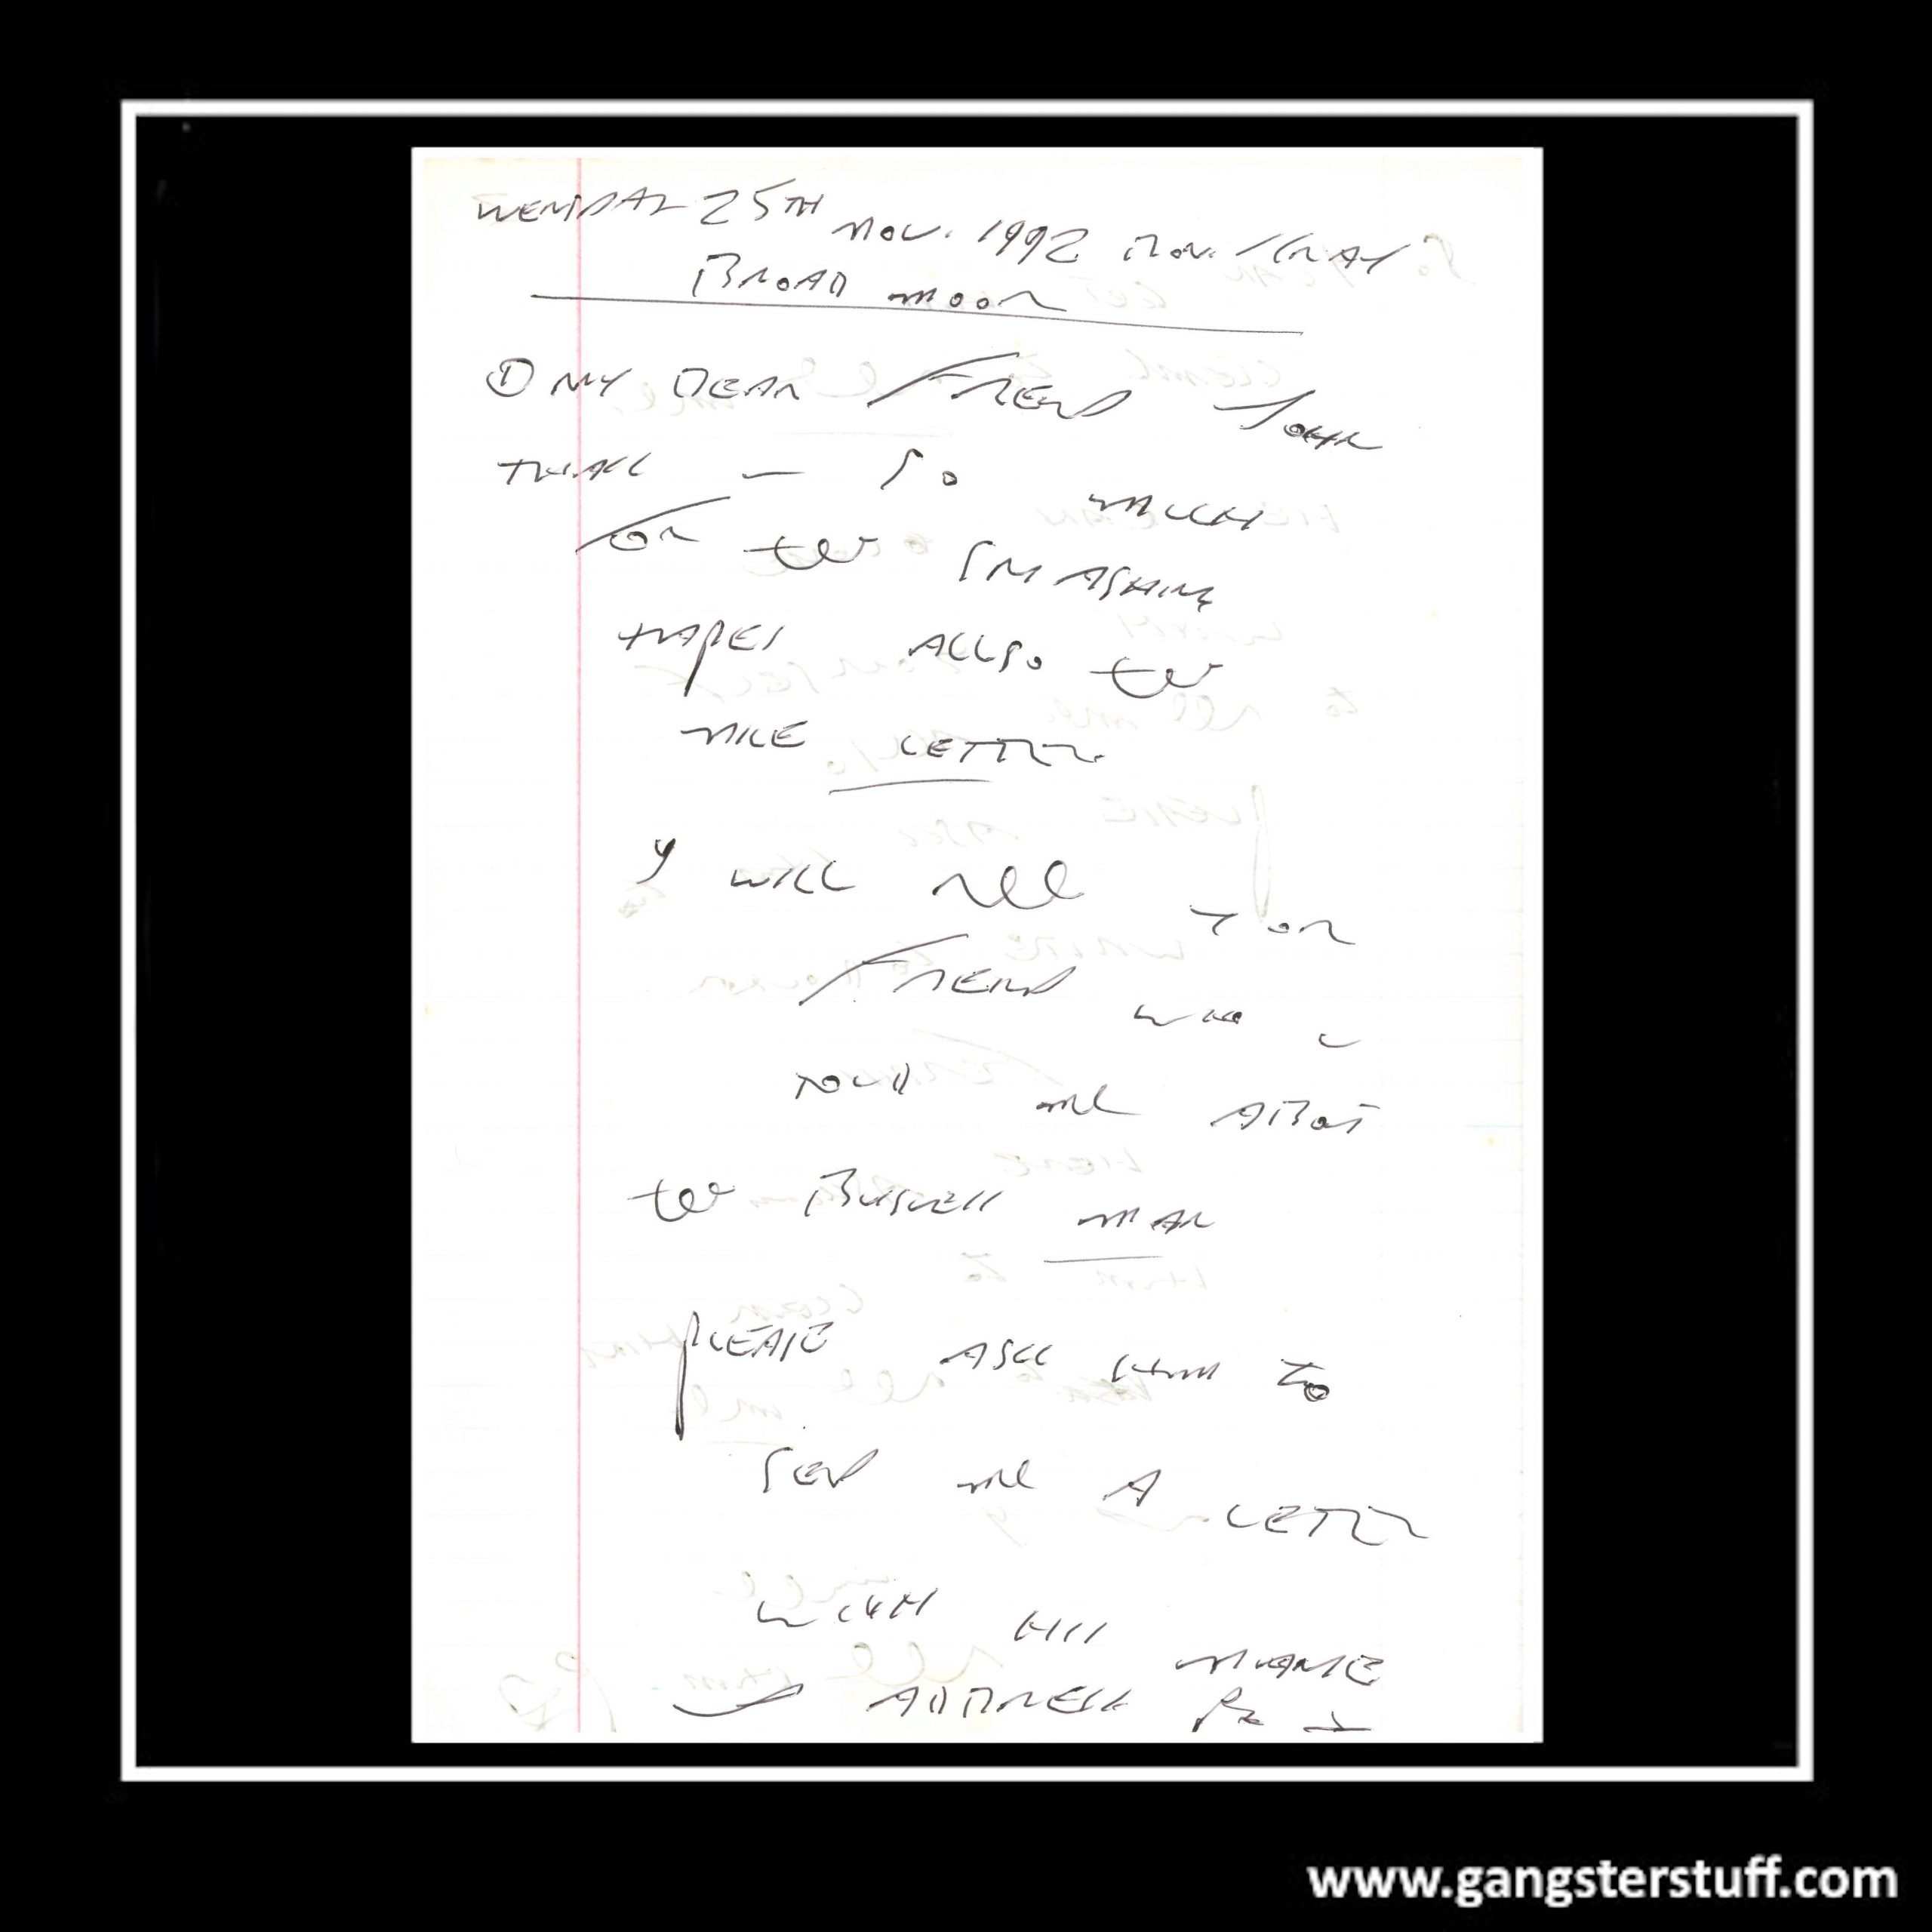 WENSDAY 25TH NOV. 1992 RON. KRAY
BROAD MOOR
① MY DEAR FREND JOHN
THANK — SO MUCH
FOR the SMASHING
TAPES ALLSO the
NICE LETTER
I WILL see YOR
FREND WHO
TOLD me ABOT
the BUSNESS MAN
PLEASE ASK HIM to
SEND me A LETTER
WITH HIS NAME
ADDRESS
www.gangsterstuff.com